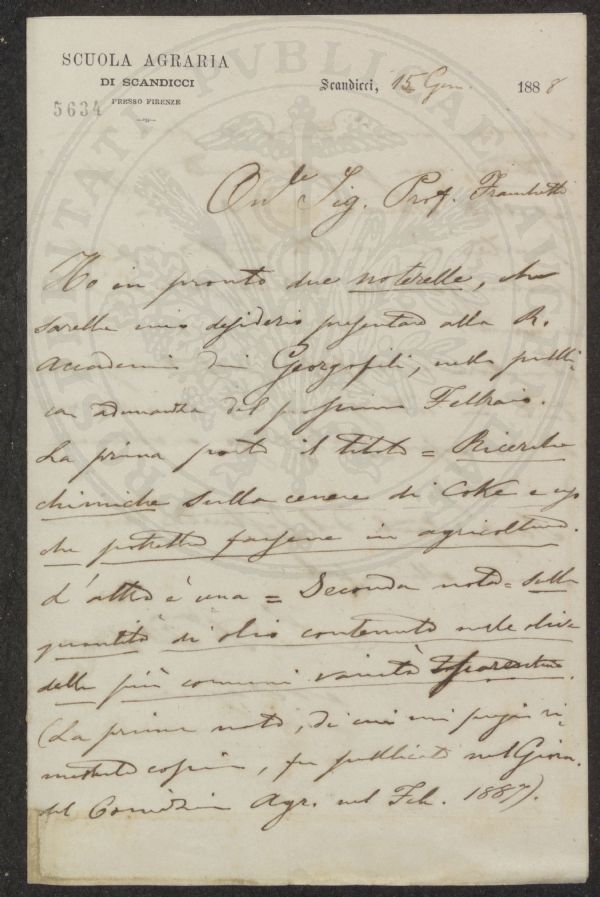 SCUOLA AGRARIA
DI SCANDICCI
PRESSO FIRENZE
5634
Scandicci, 15 Gen. 1888
On.le Sig. Prof. Franchetti
Ho in pronto due noterelle, che
sarebbe mio desiderio presentare alla R.
Accademia dei Georgofili, nella pubbli-
ca adunanza del prossimo Febbraio.
La prima porta il titolo = Ricerche
chimiche sulla cenere di Coke e uso
che potrebbe farsene in agricoltura.
L'altra è una = Seconda nota = sulla
quantità di olio contenuto nelle olive
delle più comuni varietà
(La prima nota, di cui mi pregio ri-
metterle copia, fu pubblicata nel Giorn.
del Comizio Agr. nel Feb. 1887).